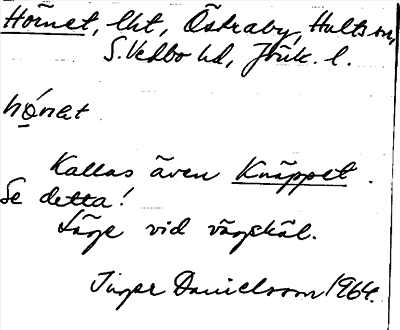 Hörnet, lht, Östraby, Hults sn,
S. Vedbo hd, Jönk. l.
hǿ̱rnət
Kallas även Knäppet.
Se detta!
Läge vid vägskäl.
Inger Danielsson 1964.